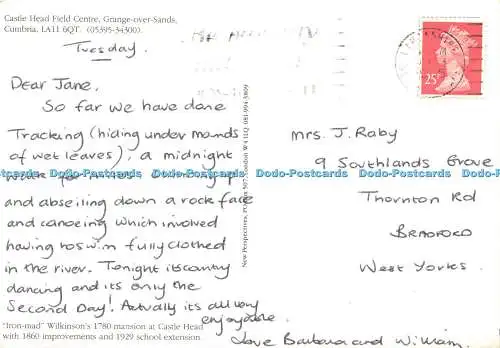 Castle Head Field Centre, Grange-over-Sands,
Cumbria. LA11 6QT. (05395-34300).
Tuesday.
Dear Jane,
So far we have done
Tracking (hiding under mounds
of wet leaves), a midnight
walk for miles
and abseiling down a rock face
and canoeing which involved
having to swim fully clothed
in the river. Tonight its country
dancing and its only the
Second Day! Actually its all very
enjoyable.
Love Barbara and William.
"Iron-mad" Wilkinson's 1780 mansion at Castle Head
with 1860 improvements and 1929 school extension
New Perspectives, PO Box 507, London W4 1LQ (081-994 3909)
25
Mrs. J. Raby
9 Southlands Grove
Thornton Rd
BRADFORD
West Yorks.
Dodo-Postcards Dodo-Postcards Dodo-Postcards Dodo-Postcards Dodo-Postcards